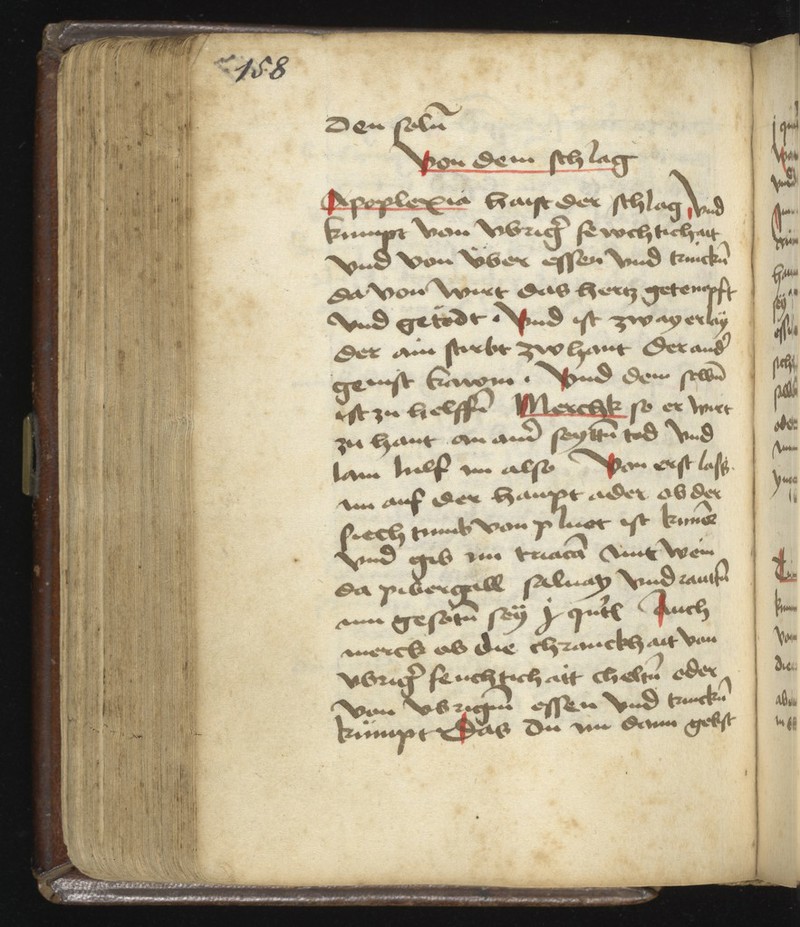 158
den selñ
Von dem schlag
Apoplexia haist der schlag und
kumpt von vbrigr̃ fewchtichait
vnd von vber essen vnd trinckñ
da von wirt das hertz getempft
vnd getödt · Vnd ist zwayerlay
der ain stirbt zwhant der and̃
genist kawm · Vnd dem selbñ
ist zu helffñ Merchk so er wirt
zu hant an ainr̃ seyttñ tod vnd
lam hilf im also Von erst lass
im auf der haupt ader ob der
siech tumb von pluet ist kumẽ
vnd gib im triacã mit wein
da pibergaill salvay vnd rauttñ
inn gesotñ sey j qnt̃l Auch
merck ob die chranckhait von
vbrigr̃ feuchtichait cheltñ oder
von vbrigm̃ essen vnd trinckñ
kümpt Das du im dann gebst